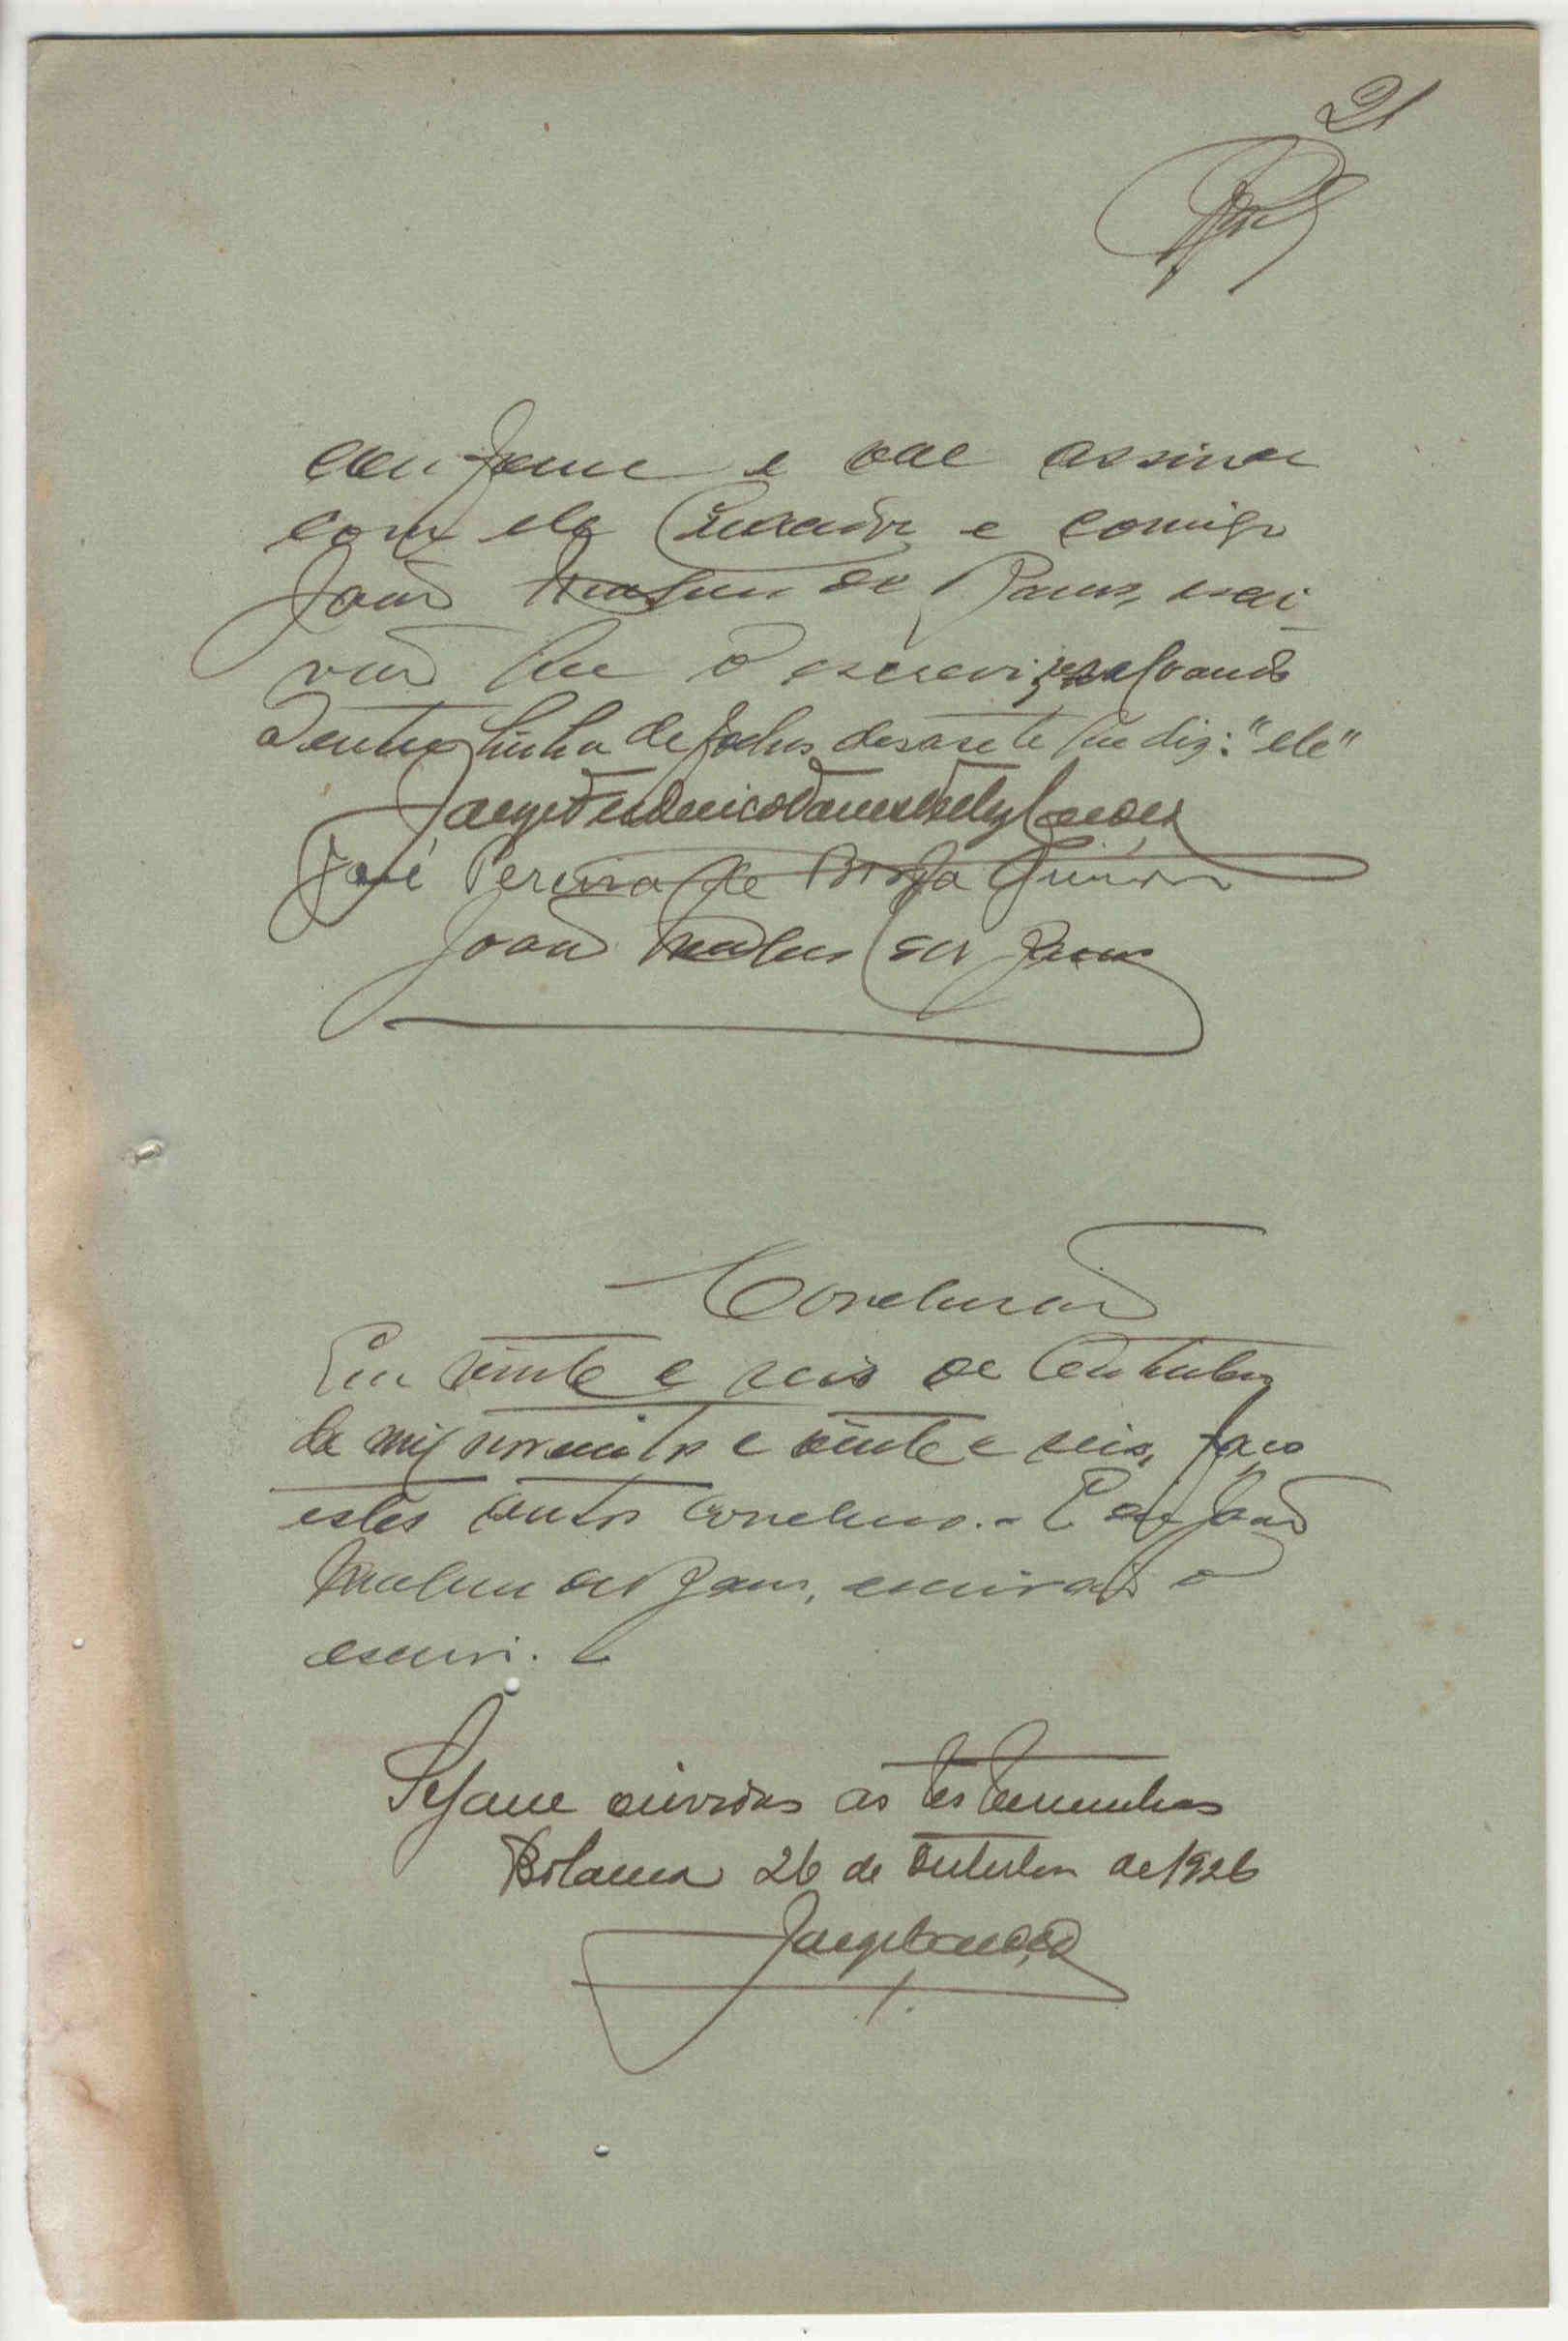 21
conforme e vae assinar
com ele Curador e comigo
João de escri-
vão que o escrevi, resalvando
a entrelinha de folhas desasete que diz: "ele"
Jorge Frederico
José Pereira de Borja Junior
João
Conclusão
Em vinte e seis de Outubro
de mil novecentos e vinte e seis, faço
estes autos conclusos. - E eu João
escrivão o
escrevi.
Sejam ouvidas as testemunhas
Bolama 26 de Outubro de 1926